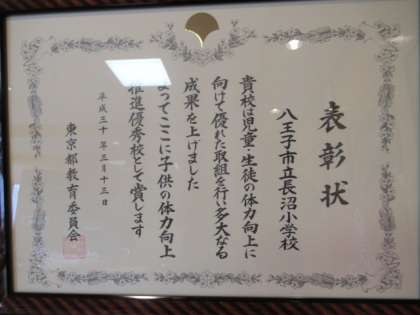 表彰状
八王子市立長沼小学校
貴校は児童・生徒の体力向上に
向けて優れた取組を行い多大なる
成果を上げました
よってここに子供の体力向上
推進優秀校として賞します
平成三十年三月十三日
東京都教育委員会